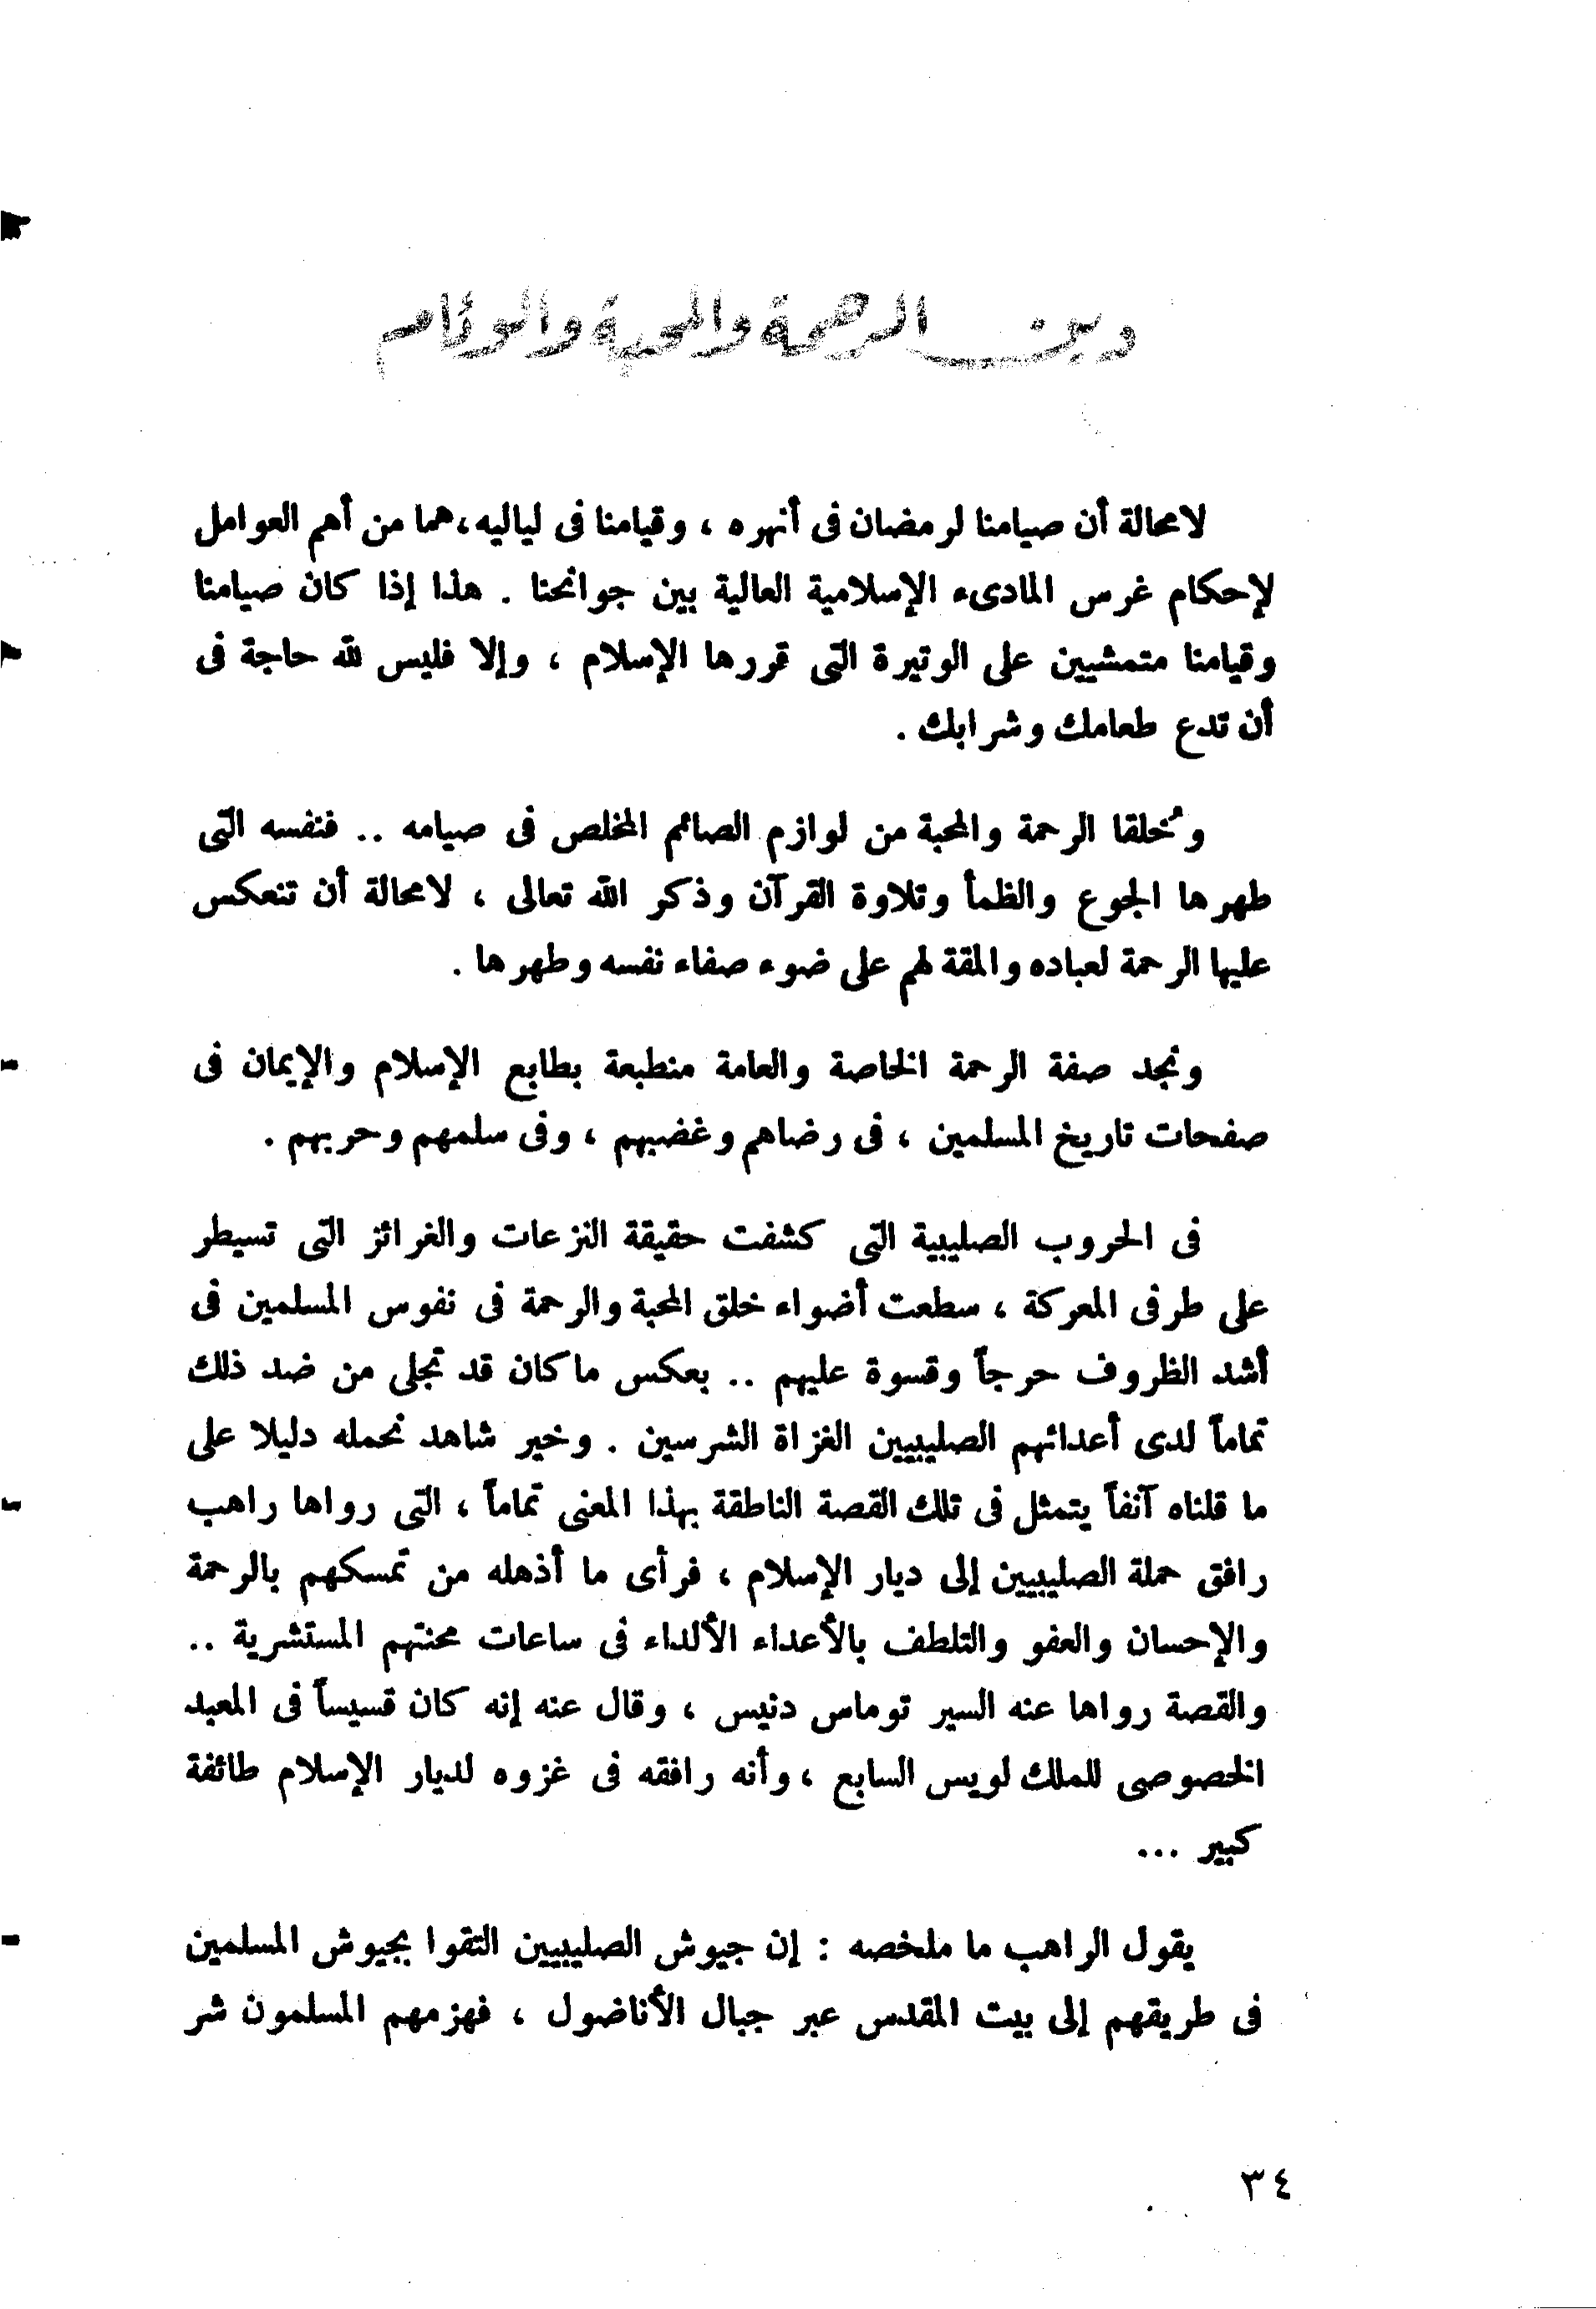 دين الرحمة والمحبة والوئام
لامحالة أن صيامنا لرمضان فى أنهره ، وقيامنا فى لياليه،هما من أهم العوامل
لإحكام غرس المادىء الإسلامية العالية بين جوانحنا . هذا إذا كان صيامنا
وقيامنا متمشيين على الوتيرة التى قررها الإسلام ، وإلا فليس لله حاجة فى
أن تدع طعامك وشرابك .
وخُلقا الرحمة والمحبة من لوازم الصائم المخلص فى صيامه .. فنفسه التى
طهرها الجوع والظمأ وتلاوة القرآن وذكر الله تعالى ، لامحالة أن تنعكس
عليها الرحمة لعباده والمقة لهم على ضوء صفاء نفسه وطهرها .
ونجد صفة الرحمة الخاصة والعامة منطبعة بطابع الإسلام والإيمان فى
صفحات تاريخ المسلمين ، فى رضاهم وغضبهم ، وفى سلمهم وحربهم .
فى الحروب الصليبية التى كشفت حقيقة النزعات والغرائز التى تسيطر
على طرفى المعركة ، سطعت أضواء خلق المحبة والرحمة فى نفوس المسلمين فى
أشد الظروف حرجاً وقسوة عليهم .. بعكس ماكان قد تجلى من ضد ذلك
تماماً لدى أعدائهم الصليبيين الغزاة الشرسين . وخير شاهد نحمله دليلا على
ما قلناه آنفاً يتمثل فى تلك القصة الناطقة بهذا المعنى تماماً ، التى رواها راهب
رافق حملة الصليبيين إلى ديار الإسلام ، فرأى ما أذهله من تمسكهم بالرحمة
والإحسان والعفو والتلطف بالأعداء الألداء فى ساعات محنتهم المستشرية ..
والقصة رواها عنه السير توماس دنيس ، وقال عنه إنه كان قسيساً فى المعبد
الخصوصى للملك لويس السابع ، وأنه رافقه فى غزوه لديار الإسلام طائفة
كبير ...
يقول الراهب ما ملخصه : إن جيوش الصليبيين التقوا بجيوش المسلمين
فى طريقهم إلى بيت المقدس عبر جبال الأناضول ، فهزمهم المسلمون شر
٣٤